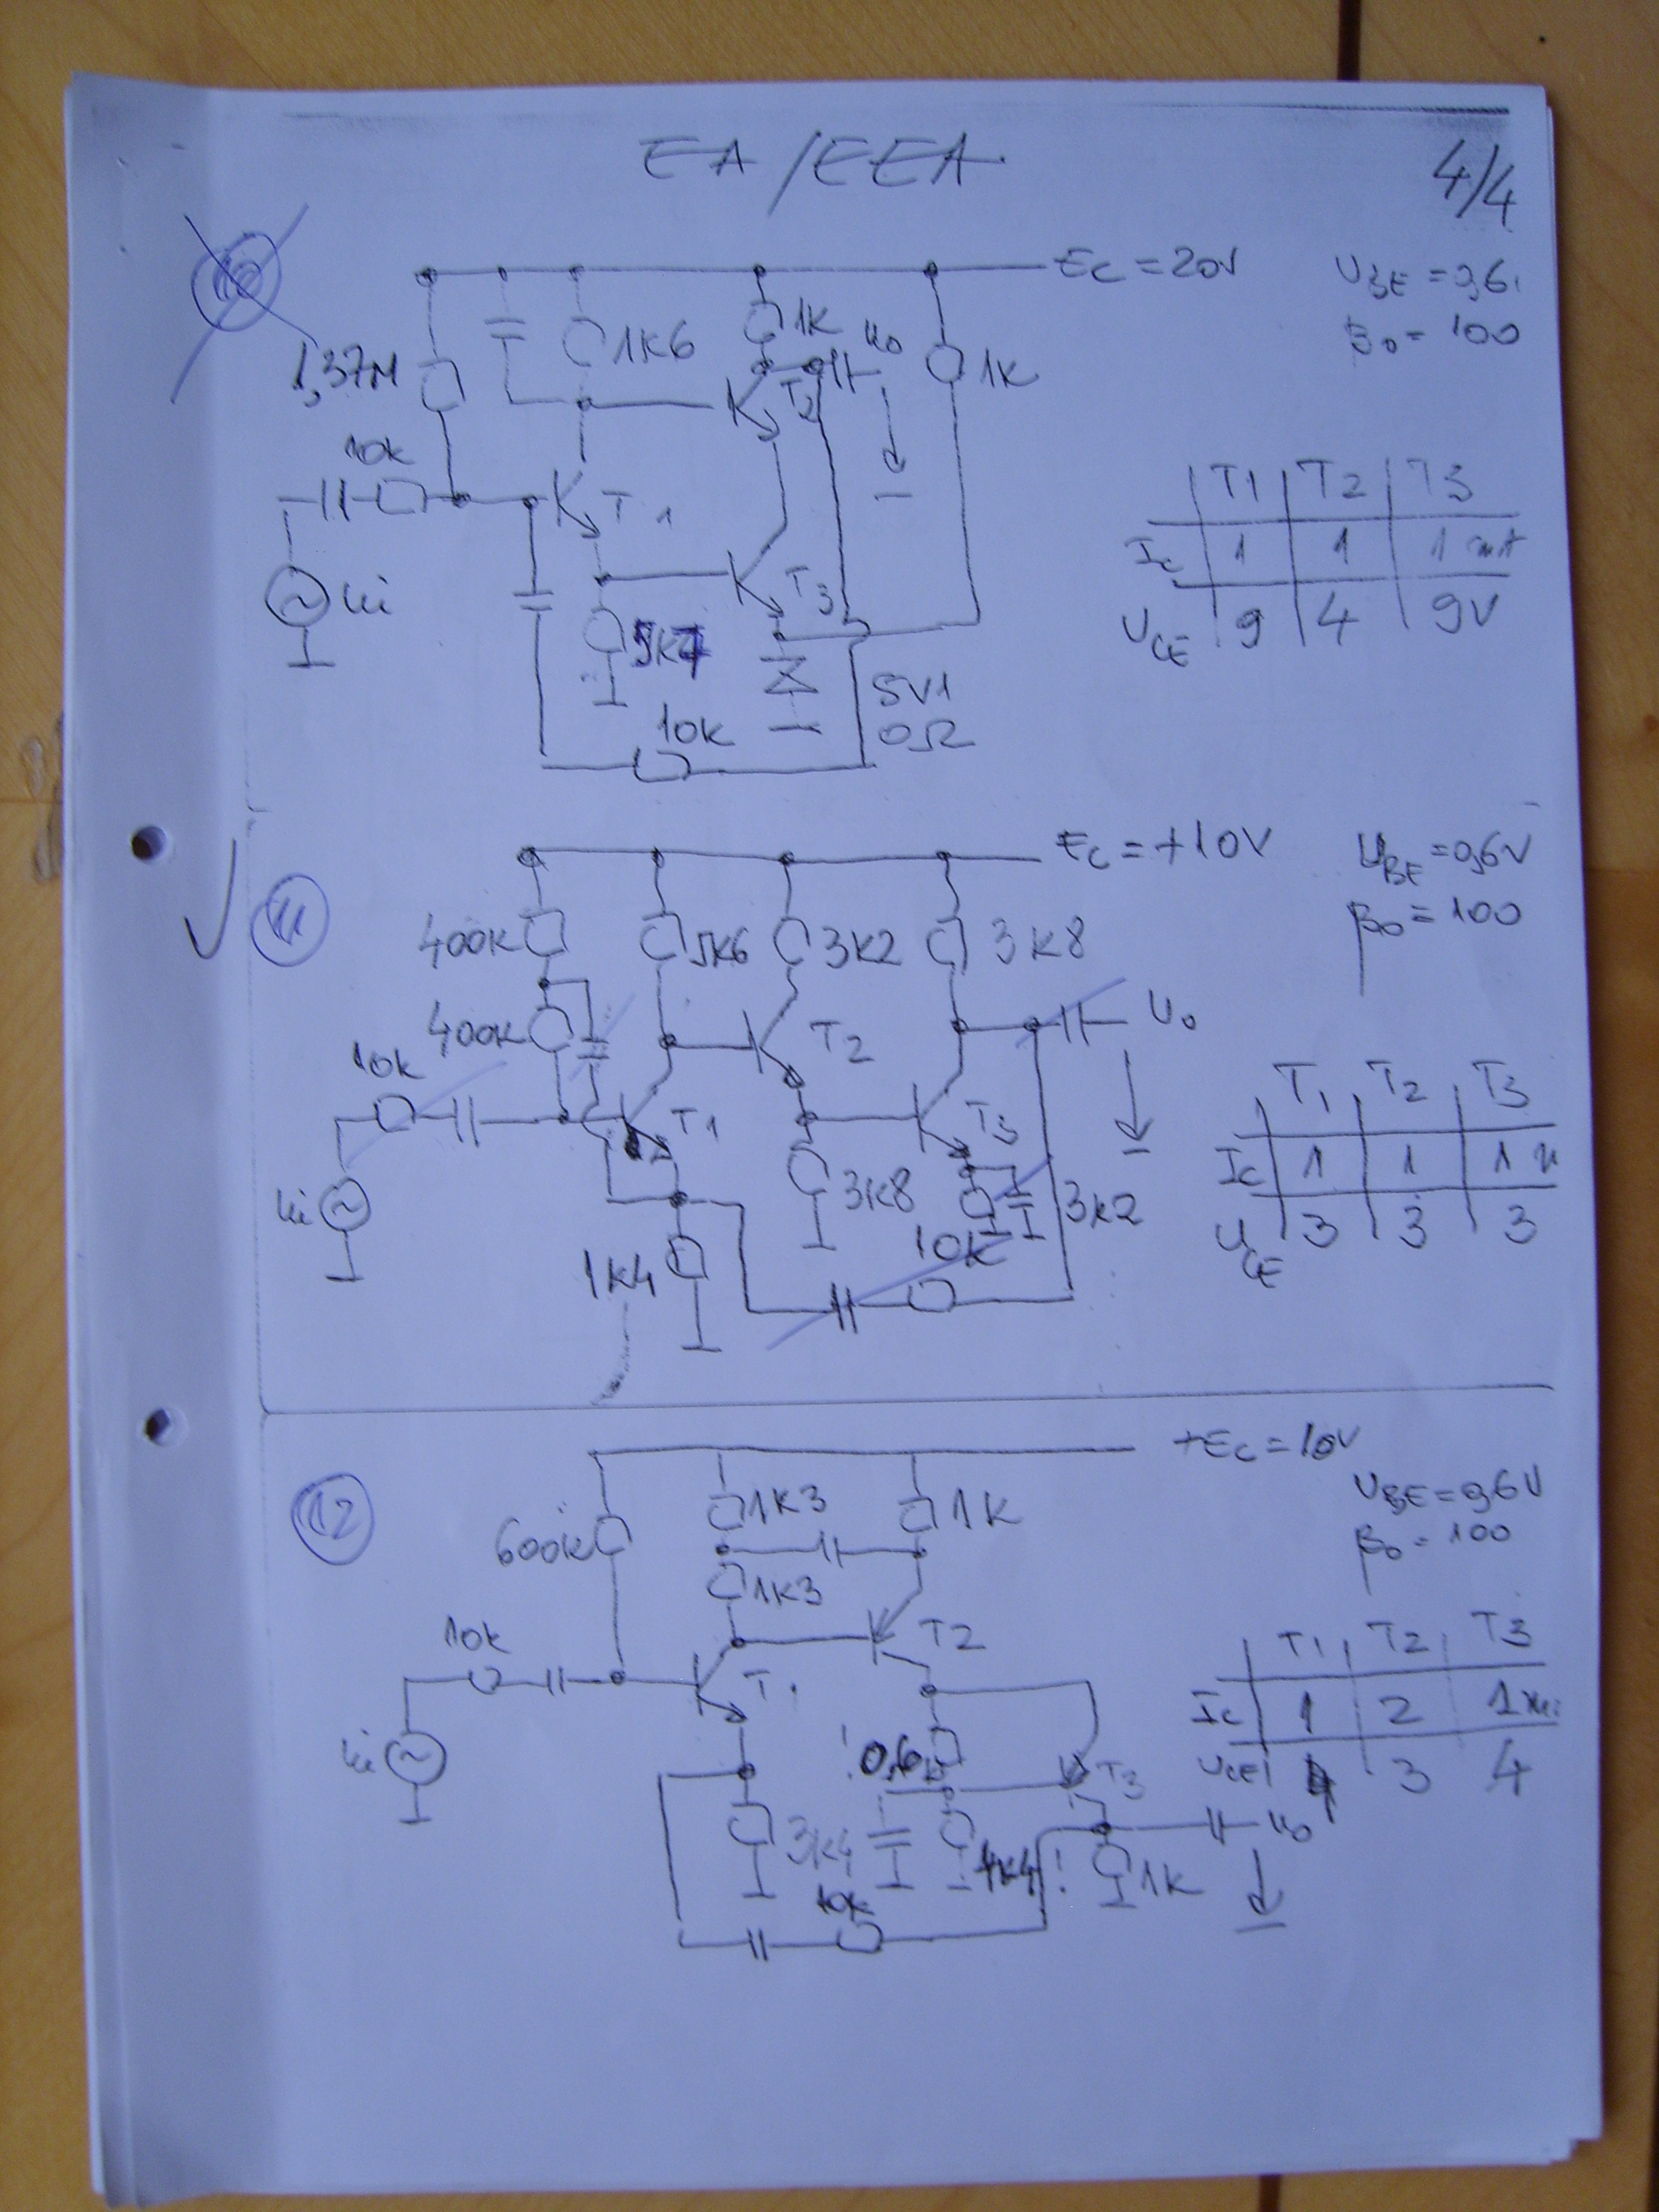 EA/EEA
4/4
10
EC = 20V
UBE = 0,6
β0 = 100
1,37M
1K6
1K
u0
1K
10K
T2
T1
ui
T3
5V1
0Ω
10K
T1 T2 T3
IC 1 1 1 mA
UCE 9 4 9V
11
EC = +10V
UBE = 0,6V
β0 = 100
400K
5K6
3K2
3K8
400K
10K
T2
U0
T1
T3
ui
3K8
3K2
10K
1K4
T1 T2 T3
IC 1 1 1
UCE 3 3 3
12
+EC = 10V
UBE = 0,6V
β0 = 100
600K
1K3
1K
1K3
10K
T2
T1
ui
!0,6K
T3
3K4
4K4!
1K
u0
10K
T1 T2 T3
IC 1 2 1
UCE 4 3 4